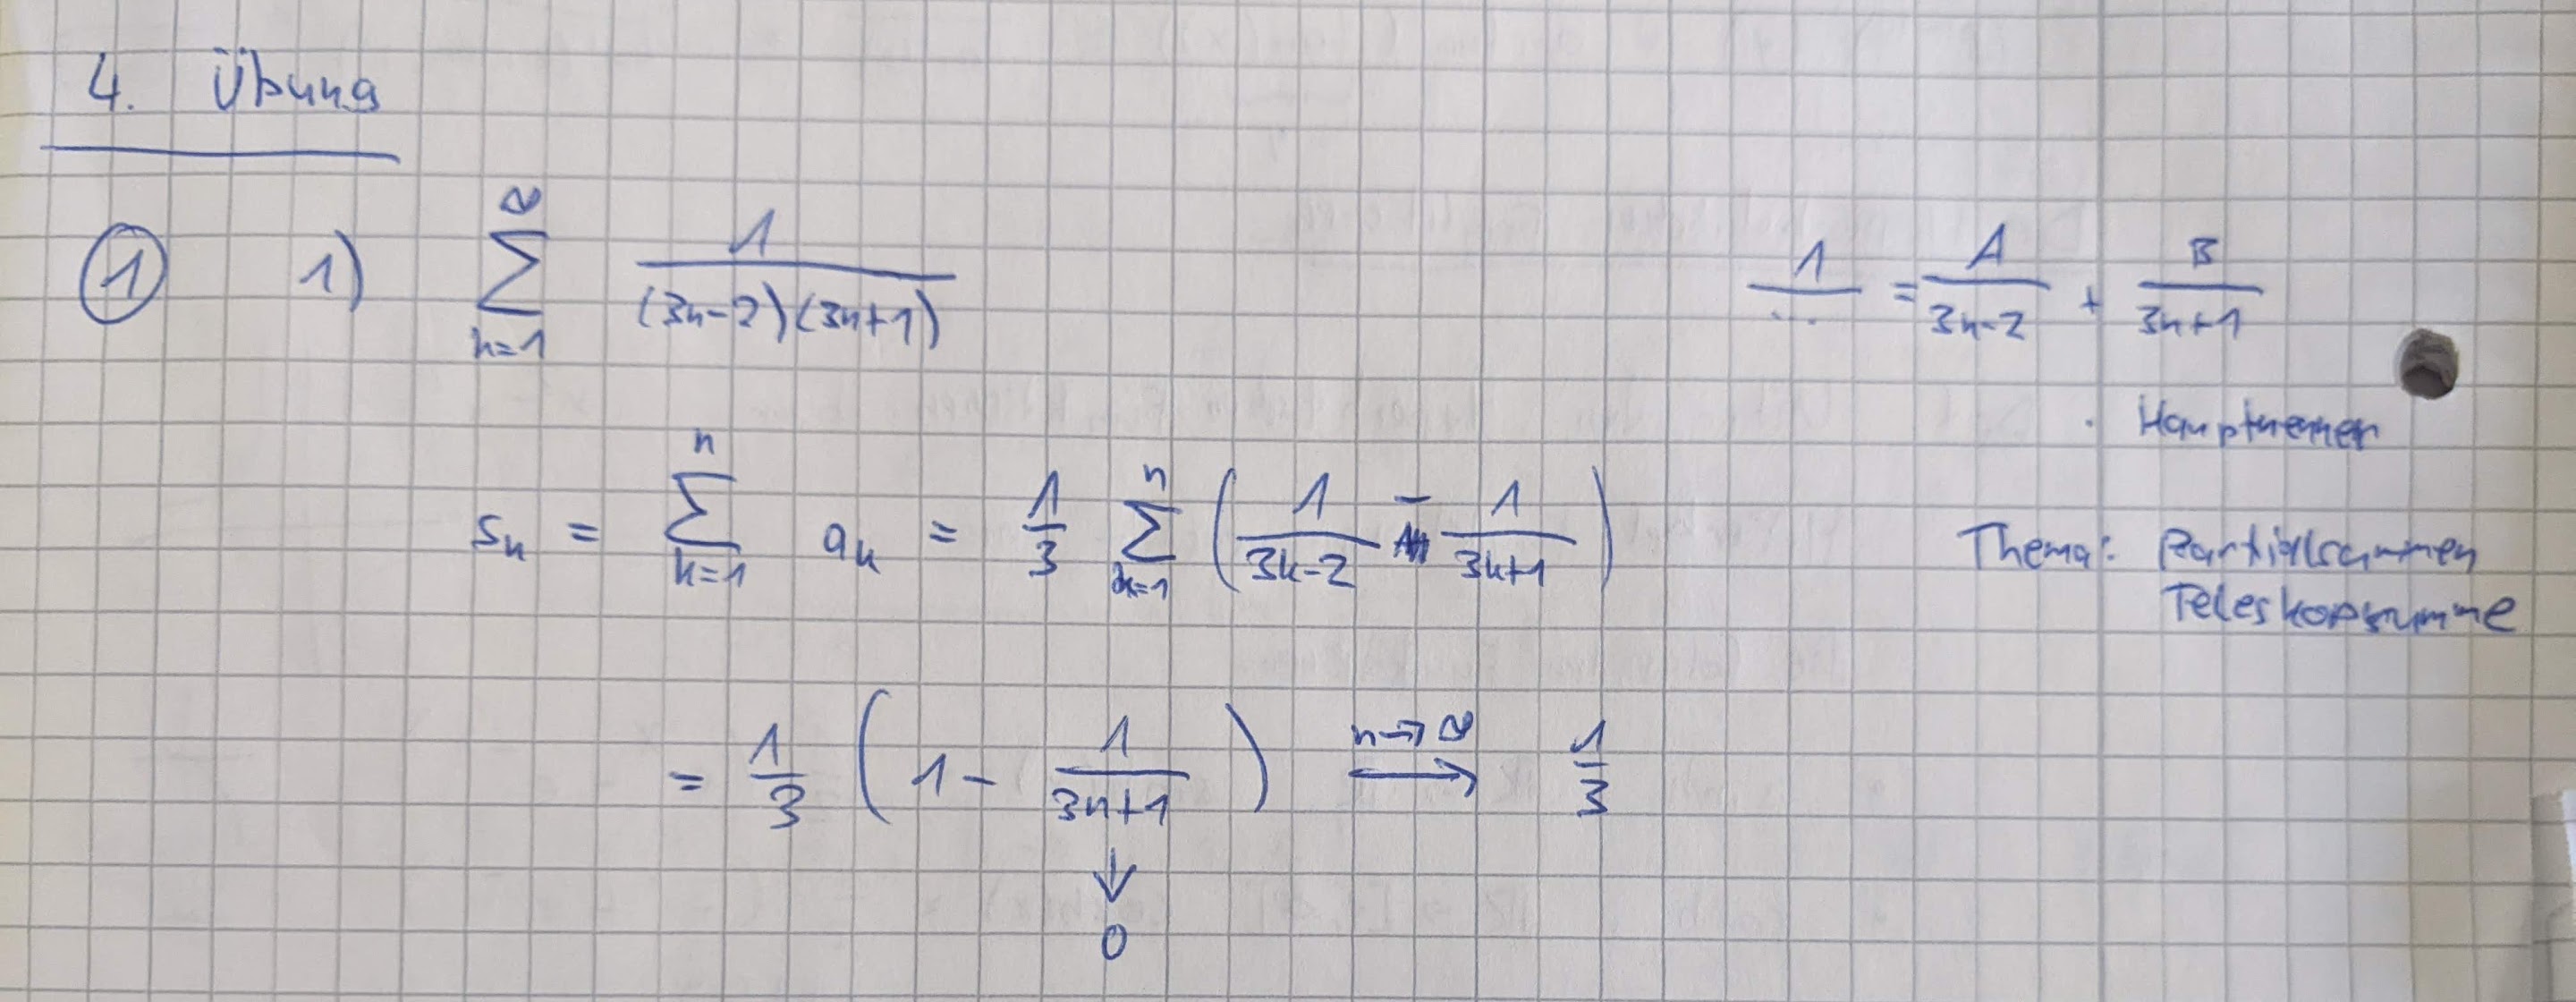 4. Übung
① 1) ∑_{n=1}^{∞} 1/((3n-2)(3n+1))
1/... = A/(3n-2) + B/(3n+1)
· Hauptnenner
s_n = ∑_{k=1}^{n} a_k = 1/3 ∑_{k=1}^{n} (1/(3k-2) - 1/(3k+1))
Thema: Partialsummen
Teleskopsumme
= 1/3 (1 - 1/(3n+1)) →^{n→∞} 1/3
↓
0